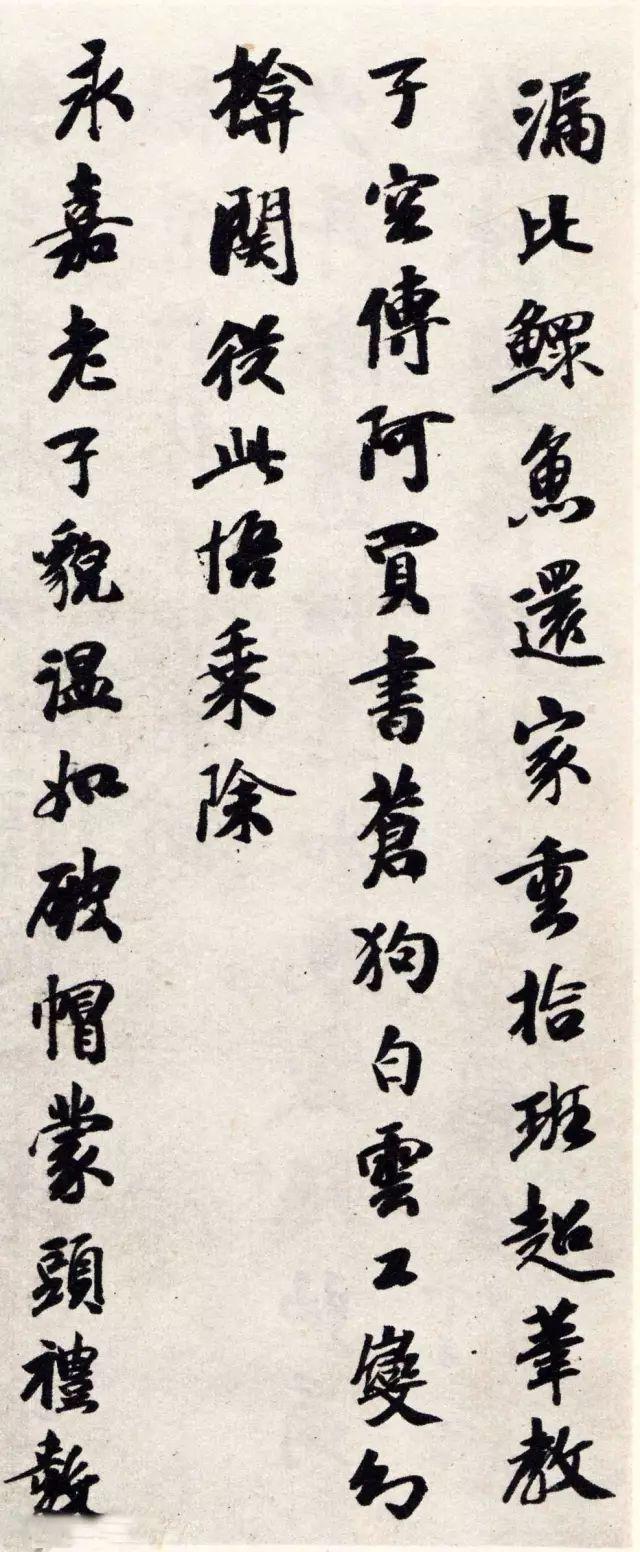 漏比鰥魚還家重拾班超筆教
子空傳阿買書蒼狗白雲工變幻
揜關從此悟乗除
永嘉老子貌温如破帽蒙頭禮數